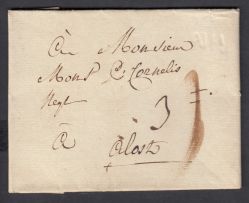 A Monsieur
Monsr C: Cornelis
Negt
3
A Alost